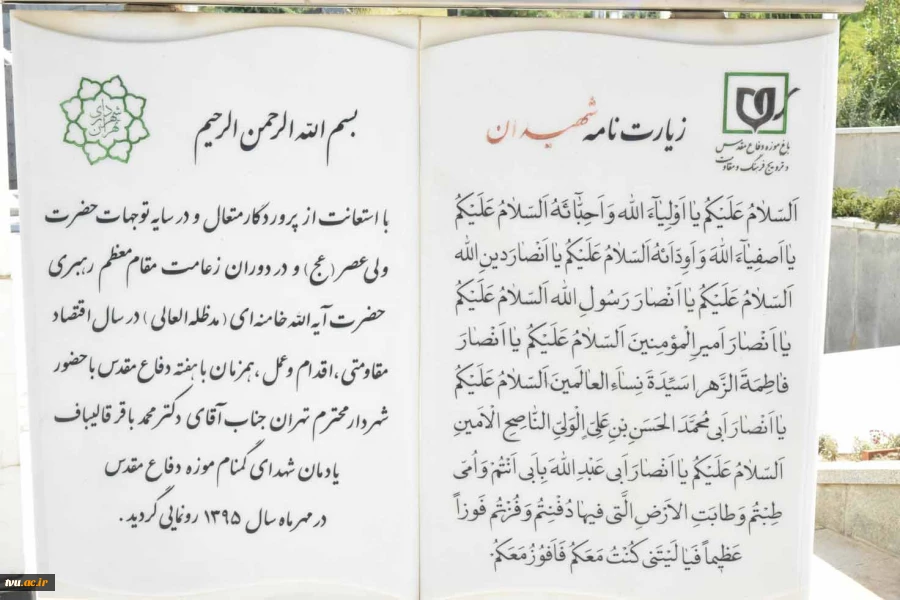 زیارت نامه شهیدان
باغ موزه دفاع مقدس
و ترویج فرهنگ مقاومت
اَلسَّلامُ عَلَیْکُم یا اَوْلِیاَءَ اللهِ وَ اَحِبّائَهُ اَلسَّلامُ عَلَیْکُم
یا اَصفِیاَءَ اللهَ وَ اَوِدّائَهُ اَلسَلامُ عَلَیْکُم یا اَنْصارَ دینِ اللهِ
اَلسَّلامُ عَلَیْکُم یا اَنْصارَ رَسُولِ اللهِ اَلسَّلامُ عَلَیْکُم
یا اَنْصارَ اَمیرِ الْمؤمِنینَ اَلسَّلامُ عَلَیْکُم یا اَنْصارَ
فاطِمَةَ الزَّهراِ سَیِّدَةَ نِساَءِ العالَمینَ اَلسَّلامُ عَلَیْکُم
یا اَنْصارَ اَبی مُحَمَّدَ الحَسَنِ بنِ عَلِیٍ الْوَلِیِّ النّاصِحِ الْاَمینِ
اَلسَلامُ عَلَیْکُم یا اَنْصارَ اَبی عَبْدِ اللهَ بِاَبی اَنْتُمْ وَ اُمّی
طِبْتُم وَ طابَتِ الاَرْضُ الَّتی فیها دُفْنِتُم وَ فُزْتُم فَوزاً
عَظیماً فَیا لَیْتَنی کُنْتُ مَعَکُم فَاَفُوزُ مَعَکُم.
شهرداری تهران
بسم الله الرحمن الرحیم
با استعانت از پروردگار متعال و در سایه توجهات حضرت
ولی عصر (عج) و در دوران زعامت مقام معظم رهبری
حضرت آیه الله خامنه ای (مدظله العالی) در سال اقتصاد
مقاومتی، اقدام و عمل، همزمان با هفته دفاع مقدس با حضور
شهردار محترم تهران جناب آقای دکتر محمد باقر قالیباف
یادمان شهدای گمنام موزه دفاع مقدس
در مهرماه سال ۱۳۹۵ رونمایی گردید.
tvu.ac.ir